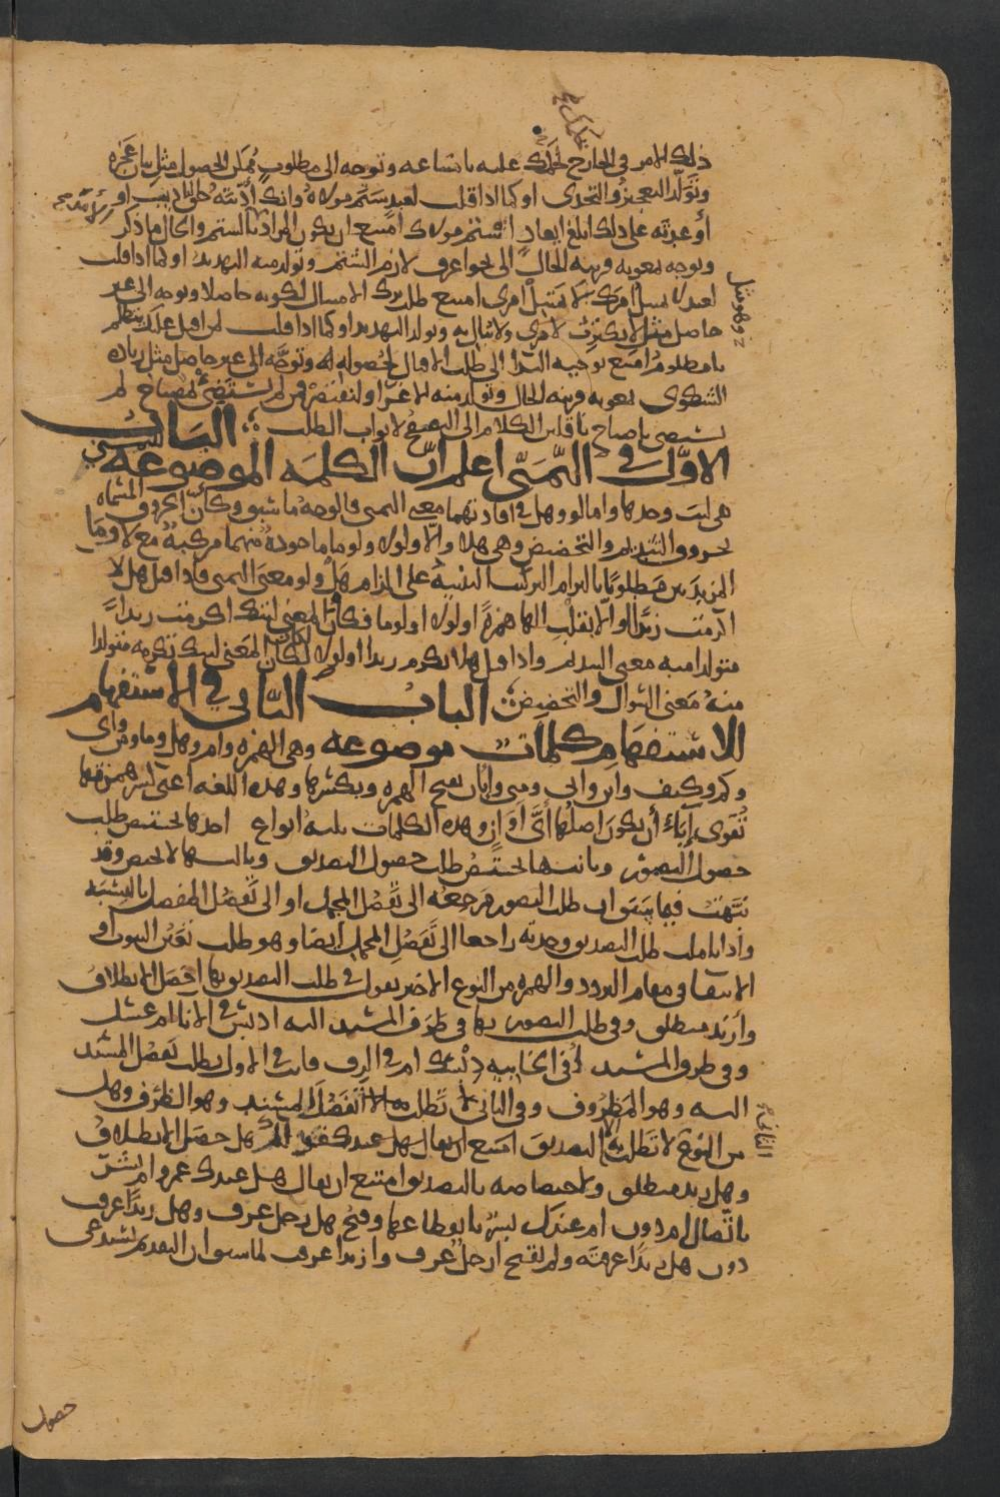 ذلك الامر في الخارج لحكمك عليه بامتناعه وتوجه الى مطلوب ممكن الحصول مثل بيان عجزه
وتولد التعجيز والتحدي او كما اذا قلت لعبد شتم مولاه وانك ادبته حق التاديب او
أوعدته على ذلك ابلغ ايعاد اتشتم مولاك امتنع ان يكون المراد بالشتم والحال ما ذكر
وتوجه بمعونة قرينة الحال الى نحو اعرف لازم الشتم وتولد منه التهديد او كما اذا قلت
لعبد لا يمتثل امرك لا تمتثل امري امتنع طلب ترك الامتثال لكونه حاصلا وتوجه الى غير
حاصل مثل لا تكترث لامري ولا تبال به وتولد التهديد او كما اذا قلت لمن اقبل عليك يتظلم
يا مظلوم امتنع توجيه الندا الى طلب الاقبال لحصوله له وتوجه الى غير حاصل مثل زيادة
الشكوى بمعونة قرينة الحال وتولد منه الاغرا ولنقتصر فمن لم يستضئ بمصباح لم
يستضئ باصباح ناقلين الكلام الى التعرض لابواب الطلب الباب
الاول في التمني اعلم ان الكلمة الموضوعة للتمني
هي ليت وحدها واما لو وهل في افادتهما معنى التمني فالوجه ما سبق وكأن الحروف المسماة
بحروف التنديم والتحضيض وهي هلا والا ولولا ولوما ماخوذة منهما مركبة مع لا وما
المزيدتين مطلوبا بالتزام التركيب التنبيه على الزام هل ولو معنى التمني فاذا قيل هلا
اكرمت زيدا او الا بقلب الها همزة او لولا او لوما فكأن المعنى ليتك اكرمت زيدا
متولدا منه معنى التنديم واذا قيل هلا تكرم زيدا او لولا فكأن المعنى ليتك تكرمه متولدا
منه معنى السوال والتحضيض الباب الثاني في الاستفهام
للاستفهام كلمات موضوعة وهي الهمزة وام وهل وما ومن واي
وكم وكيف واين وانى ومتى وايان بفتح الهمزة وبكسرها وهذه اللغة اعني كسر همزتها
تقوي إباء أن يكون اصلها أيَّ أوان وهذه الكلمات ثلثة انواع احدها يختص طلب
حصول التصور وثانيها يختص طلب حصول التصديق وثالثها لا يختص وقد
نبهت فيما سبق ان طلب التصور مرجعه الى تفصيل المجمل او الى تفصيل المفصل بالنسبة
واذا تاملت طلب التصديق وجدته راجعا الى تفصيل المجمل ايضا وهو طلب تعين الثبوت او
الانتفا في مقام التردد والهمزة من النوع الاخير تقول في طلب التصديق بها احصل الانطلاق
وأزيد منطلق وفي طلب التصور بها في طرف المسند اليه ادبس في الانا ام عسل
وفي طرف المسند أفي الخابية دبسك ام في الزق فانت في الاول تطلب تفصيل المسند
اليه وهو المظروف وفي الثاني تطلب تفصيل المسند وهو الظرف وهل
من النوع لا تطلب الا التصديق امتنع ان يقال هل عندك هل حصل الانطلاق
وهل زيد منطلق ولاختصاصه بالتصديق امتنع ان يقال هل عندك عمرو ام بشر
باتصال ام دون ام عندك بشر بانقطاعها وقبح هل رجل عرف وهل زيدا عرفت
دون هل زيدا عرفته ولم يقبح ارجل عرف وازيدا عرفت لما سبق ان التقديم يستدعي
حصول
وهو مثل
الثاني